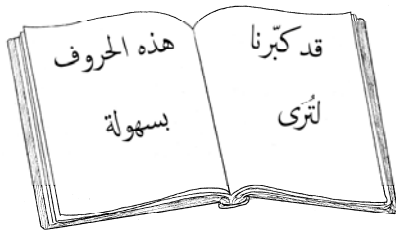 قد كبّرنا
لتُرَى
هذه الحروف
بسهولة